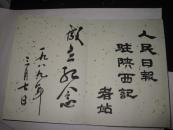 人民日報
駐陝西記
者站
立纪念
一九八九年
月七日